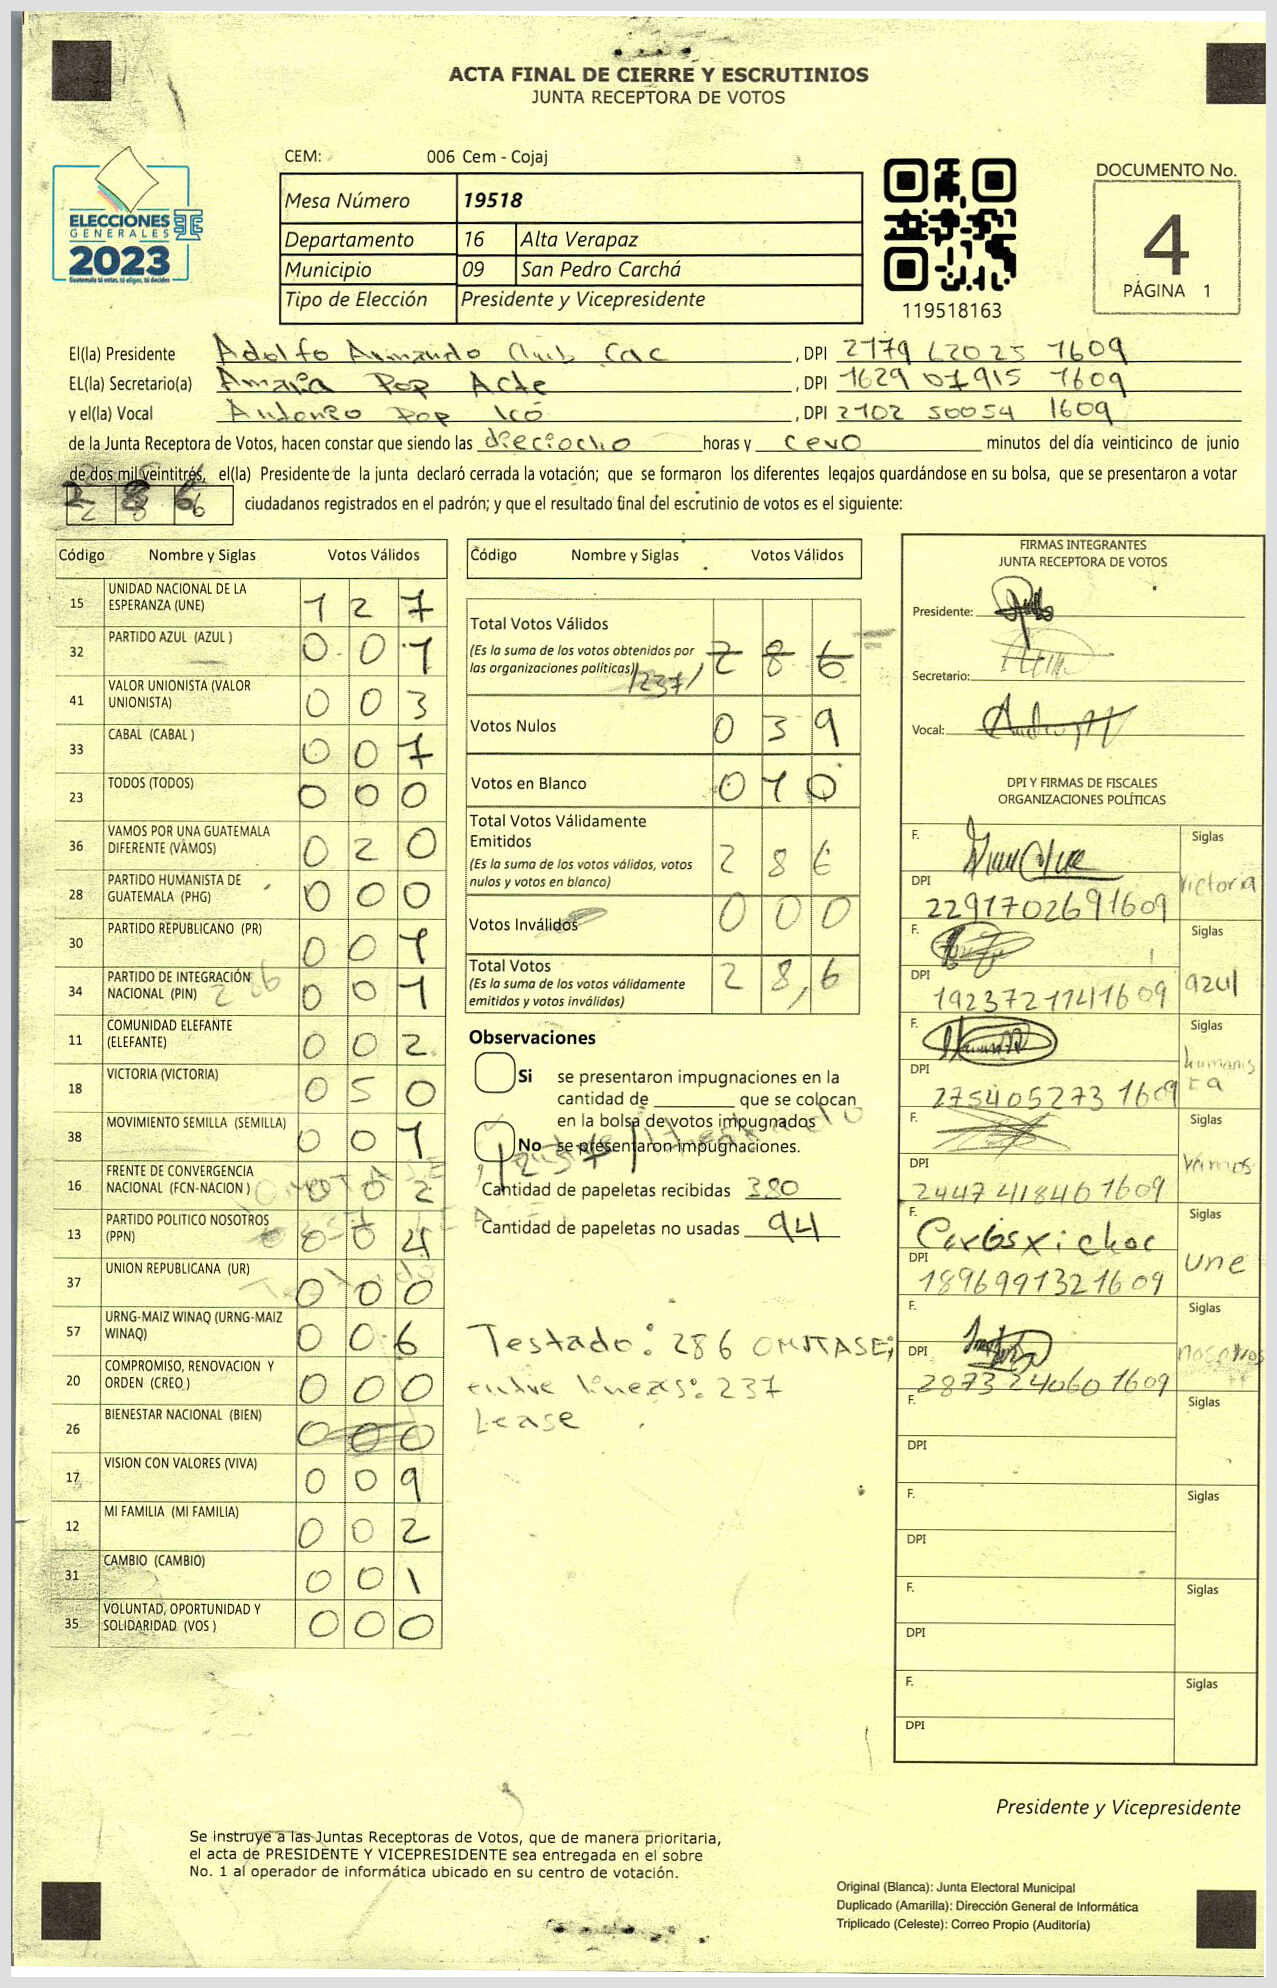 ACTA FINAL DE CIERRE Y ESCRUTINIOS
JUNTA RECEPTORA DE VOTOS
ELECCIONES
GENERALES
2023
Guatemala tú votas, tú eliges, tú decides
CEM: 006 Cem - Cojaj
Mesa Número 19518
Departamento 16 Alta Verapaz
Municipio 09 San Pedro Carchá
Tipo de Elección Presidente y Vicepresidente
119518163
DOCUMENTO No.
4
PÁGINA 1
El(la) Presidente Adolfo Armando Cac , DPI 2179 62025 1609
EL(la) Secretario(a) Amaria Pop Acte , DPI 1629 07915 1609
y el(la) Vocal Antonio Pop Icó , DPI 2102 50054 1609
de la Junta Receptora de Votos, hacen constar que siendo las dieciocho horas y cero minutos del día veinticinco de junio
de dos mil veintitrés, el(la) Presidente de la junta declaró cerrada la votación; que se formaron los diferentes legajos quardándose en su bolsa, que se presentaron a votar
286 ciudadanos registrados en el padrón; y que el resultado final del escrutinio de votos es el siguiente:
Código Nombre y Siglas Votos Válidos
15 UNIDAD NACIONAL DE LA ESPERANZA (UNE) 127
32 PARTIDO AZUL (AZUL ) 001
41 VALOR UNIONISTA (VALOR UNIONISTA) 003
33 CABAL (CABAL ) 007
23 TODOS (TODOS) 000
36 VAMOS POR UNA GUATEMALA DIFERENTE (VAMOS) 020
28 PARTIDO HUMANISTA DE GUATEMALA (PHG) 000
30 PARTIDO REPUBLICANO (PR) 001
34 PARTIDO DE INTEGRACIÓN NACIONAL (PIN) 001
11 COMUNIDAD ELEFANTE (ELEFANTE) 002
18 VICTORIA (VICTORIA) 050
38 MOVIMIENTO SEMILLA (SEMILLA) 001
16 FRENTE DE CONVERGENCIA NACIONAL (FCN-NACION ) 002
13 PARTIDO POLITICO NOSOTROS (PPN) 004
37 UNION REPUBLICANA (UR) 000
57 URNG-MAIZ WINAQ (URNG-MAIZ WINAQ) 006
20 COMPROMISO, RENOVACION Y ORDEN (CREO ) 000
26 BIENESTAR NACIONAL (BIEN) 000
17 VISION CON VALORES (VIVA) 009
12 MI FAMILIA (MI FAMILIA) 002
31 CAMBIO (CAMBIO) 001
35 VOLUNTAD, OPORTUNIDAD Y SOLIDARIDAD (VOS ) 000
Código Nombre y Siglas Votos Válidos
Total Votos Válidos
(Es la suma de los votos obtenidos por
las organizaciones políticas) /237/ 286
Votos Nulos 039
Votos en Blanco 010
Total Votos Válidamente
Emitidos
(Es la suma de los votos válidos, votos
nulos y votos en blanco) 286
Votos Inválidos 000
Total Votos
(Es la suma de los votos válidamente
emitidos y votos inválidos) 286
Observaciones
Si se presentaron impugnaciones en la
cantidad de ________ que se colocan
en la bolsa de votos impugnados
No se presentaron impugnaciones.
Cantidad de papeletas recibidas 380
Cantidad de papeletas no usadas 94
Testado: 286 OMITASE;
entre lineas: 237
Lease
FIRMAS INTEGRANTES
JUNTA RECEPTORA DE VOTOS
Presidente:
Secretario:
Vocal:
DPI Y FIRMAS DE FISCALES
ORGANIZACIONES POLÍTICAS
F. Siglas victoria
DPI 2291702691609
F. Siglas azul
DPI 1923721741609
F. Siglas humanista
DPI 275405273 1609
F. Siglas vamos
DPI 2447418461609
F. Carlos xi choc Siglas une
DPI 1896991321609
F. Siglas nosotros
DPI 2873240601609
F. Siglas
DPI
F. Siglas
DPI
F. Siglas
DPI
F. Siglas
DPI
Presidente y Vicepresidente
Se instruye a las Juntas Receptoras de Votos, que de manera prioritaria,
el acta de PRESIDENTE Y VICEPRESIDENTE sea entregada en el sobre
No. 1 al operador de informática ubicado en su centro de votación.
Original (Blanca): Junta Electoral Municipal
Duplicado (Amarilla): Dirección General de Informática
Triplicado (Celeste): Correo Propio (Auditoría)